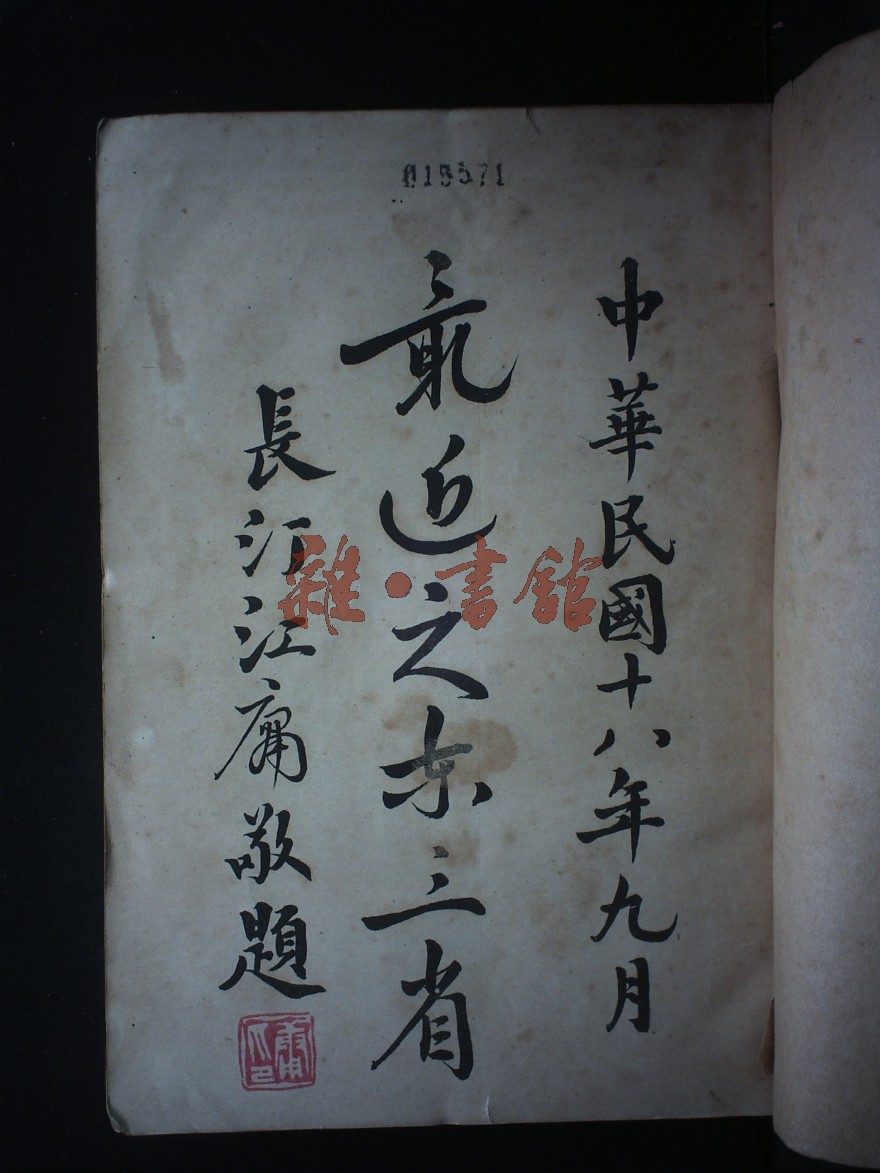 019571
中華民國十八年九月
最近之东三省
長汀江庸敬題
雜·書館